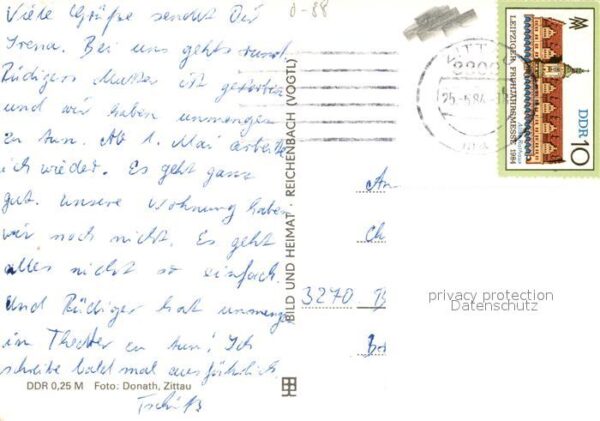 Viele Grüße sendet Dir
Irena. Bei uns gehts rund
Rüdigers Mutter ist gestorben
und wir haben unmengen
zu tun. Ab 1. Mai arbeite
ich wieder. Es geht ganz
gut. unsere Wohnung haben
wir noch nicht. Es geht
alles nicht so einfach.
Und Rüdiger hat unmengen
im Theater zu tun! Ich
schreibe bald mal ausführlich.
DDR 0,25 M Foto: Donath, Zittau
Tschüß
0-88
BILD UND HEIMAT · REICHENBACH (VOGTL)
25.-5.84
LEIPZIGER FRÜHJAHRSMESSE 1984
Altes Rathaus
DDR 10
An
Ch
3270 B
privacy protection
Datenschutz